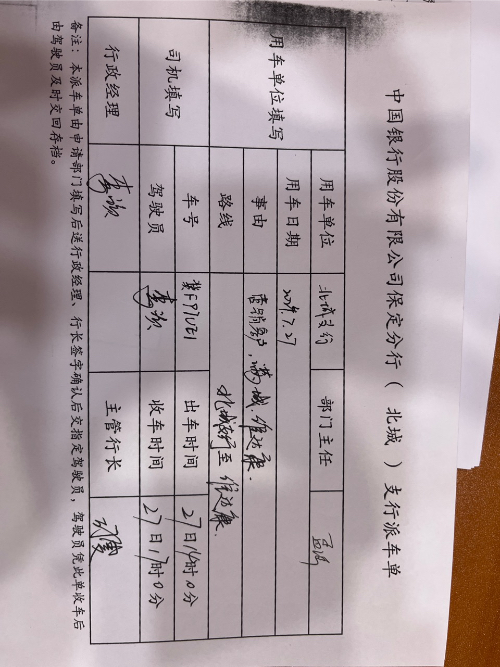 中国银行股份有限公司保定分行（ 北城 ）支行派车单
用车单位填写
用车单位
北城支行
部门主任
用车日期
2024.7.27
事由
营销客户，满城
路线
北城支行至
司机填写
车号
冀F97UE1
出车时间
27日16时0分
驾驶员
收车时间
27日17时0分
行政经理
主管行长
备注：本派车单由申请部门填写后送行政经理、行长签字确认后交指定驾驶员，驾驶员凭此单收车后
由驾驶员及时交回存档。